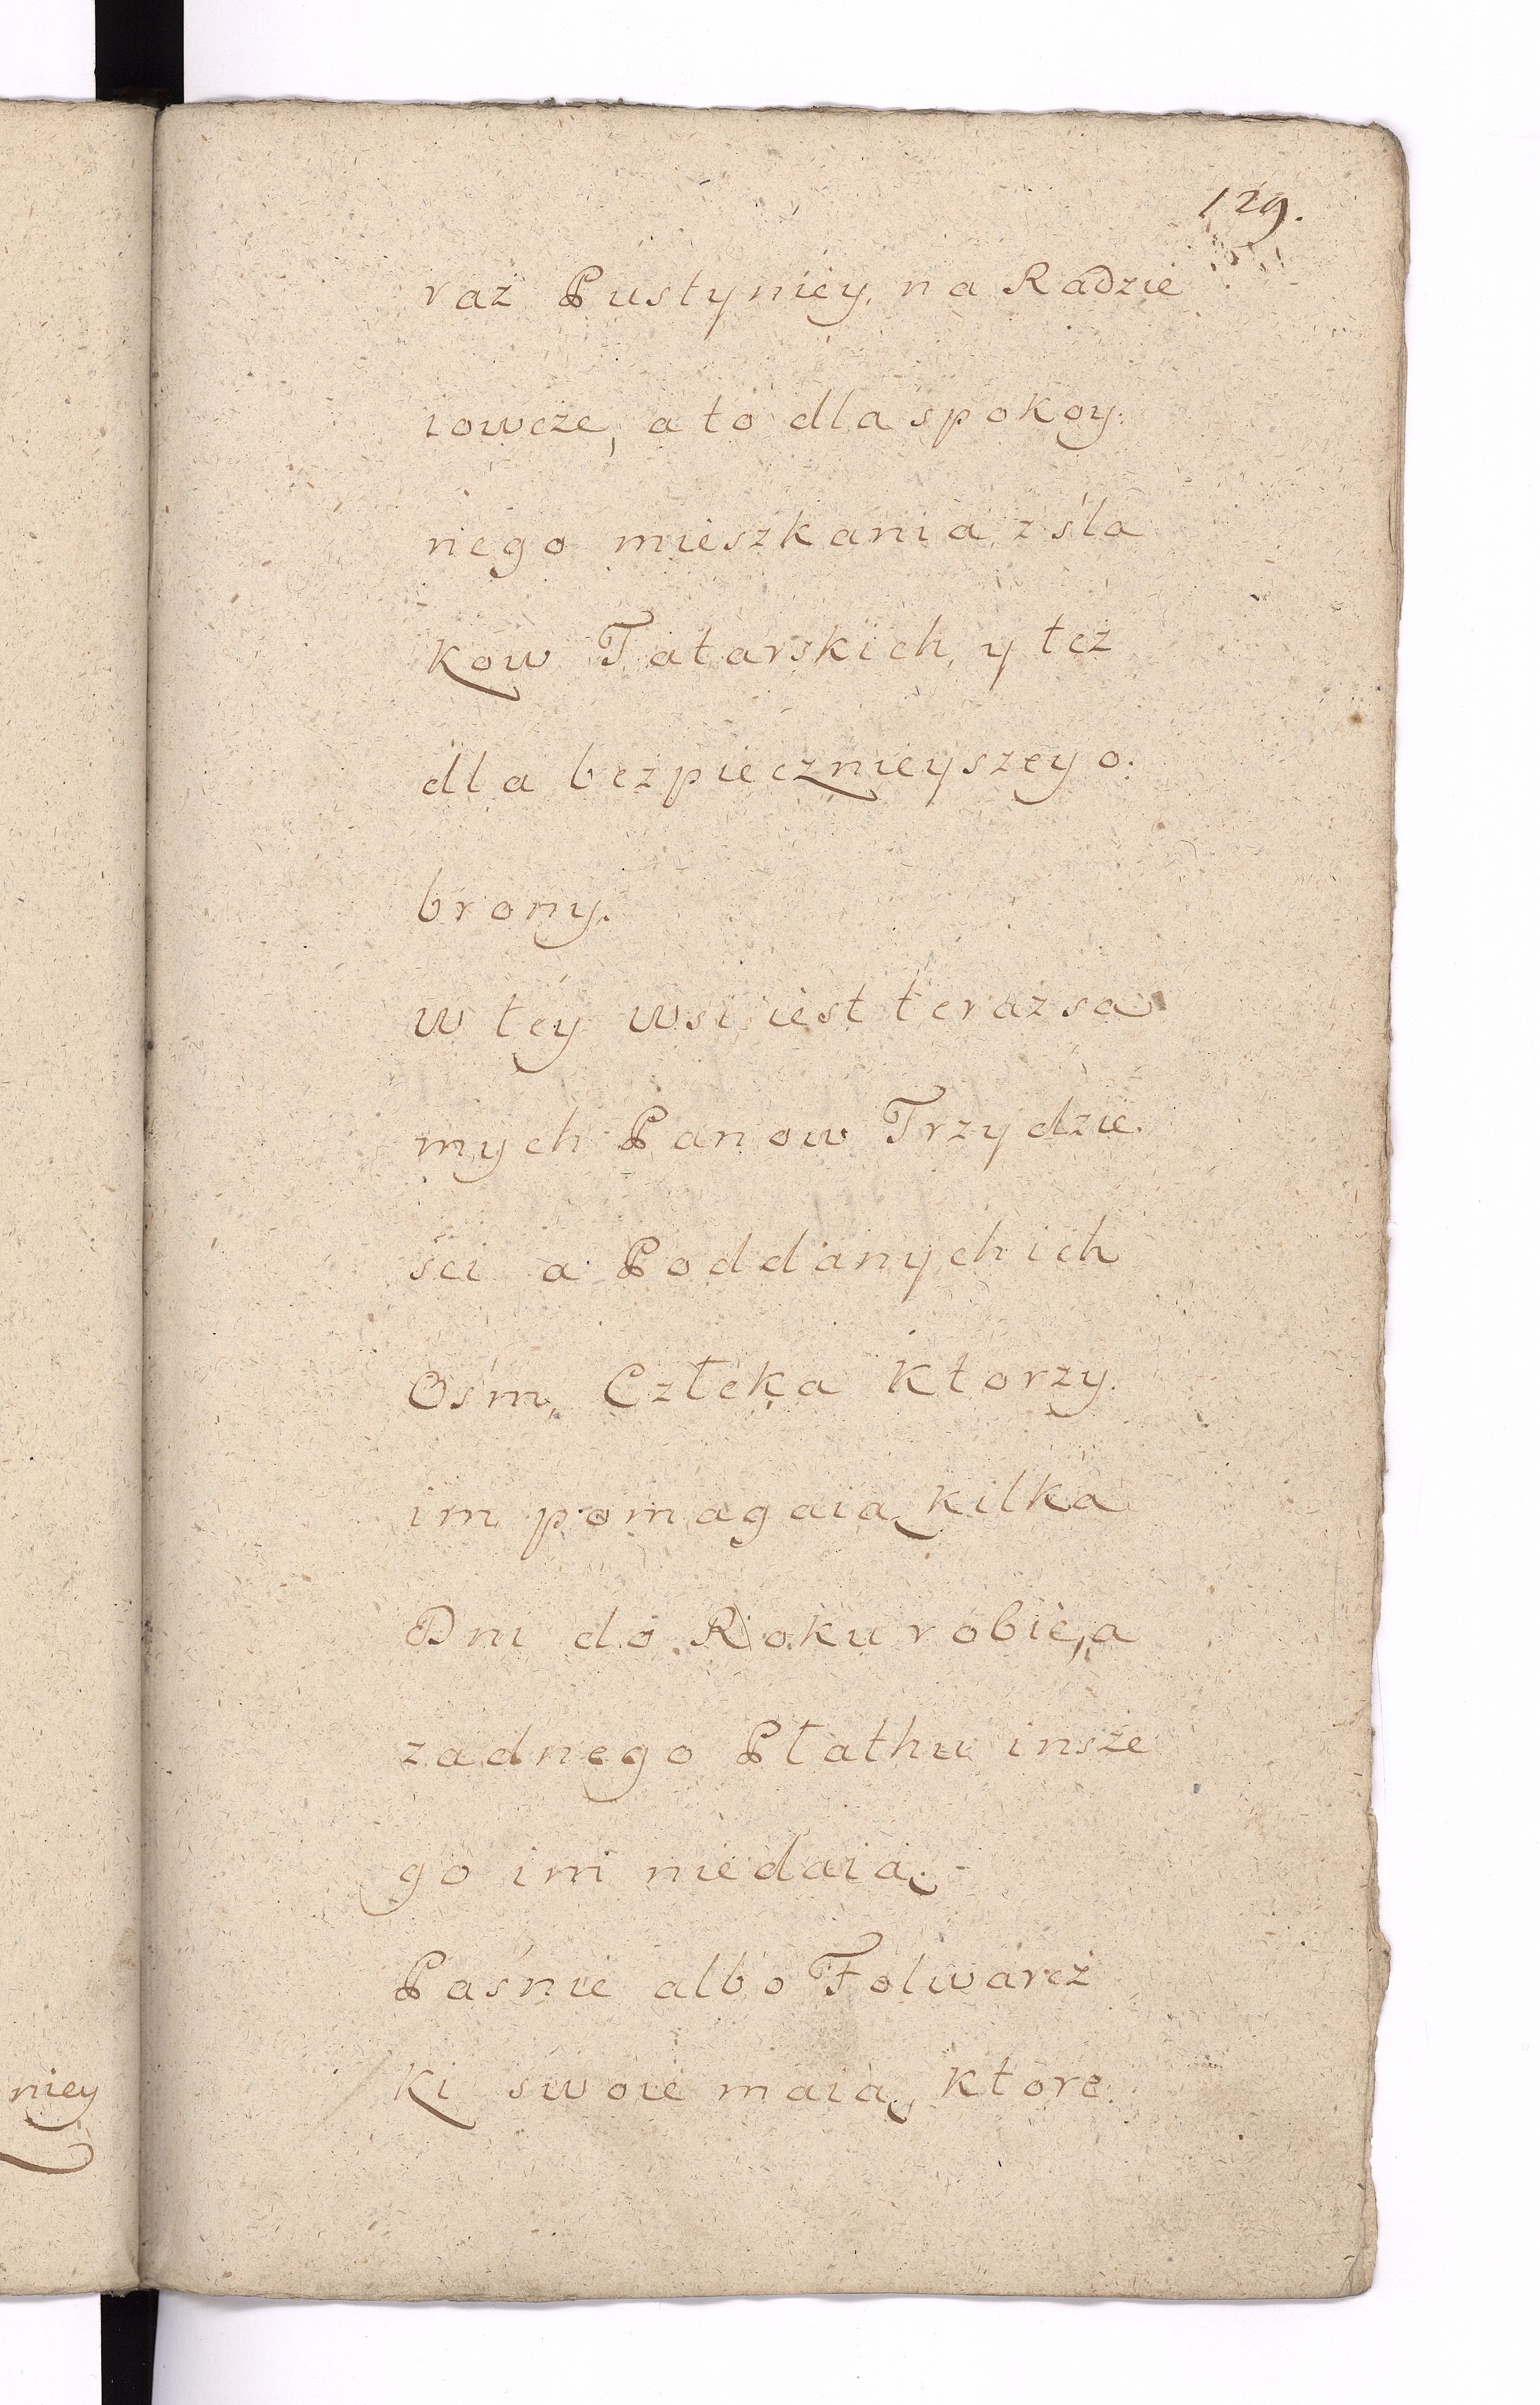 129.
raz Pustyniey, na Radzie
iowcze, a to dla spokoy:
nego mieszkania z śla
kow Tatarskich, y tez
dla bezpiecznieyszey o:
brony.
w tey wsi iest teraz sa
mych Panow Trzydzie.
ści a Poddanych ich
Ośm, Człeka Ktorzy.
im pomagaią kilka
Dni do Roku robić, a
zadnego Płathu insze
go im niedaią. -
Paśnie albo Folwarcz
ki swoie maią, ktore
niey